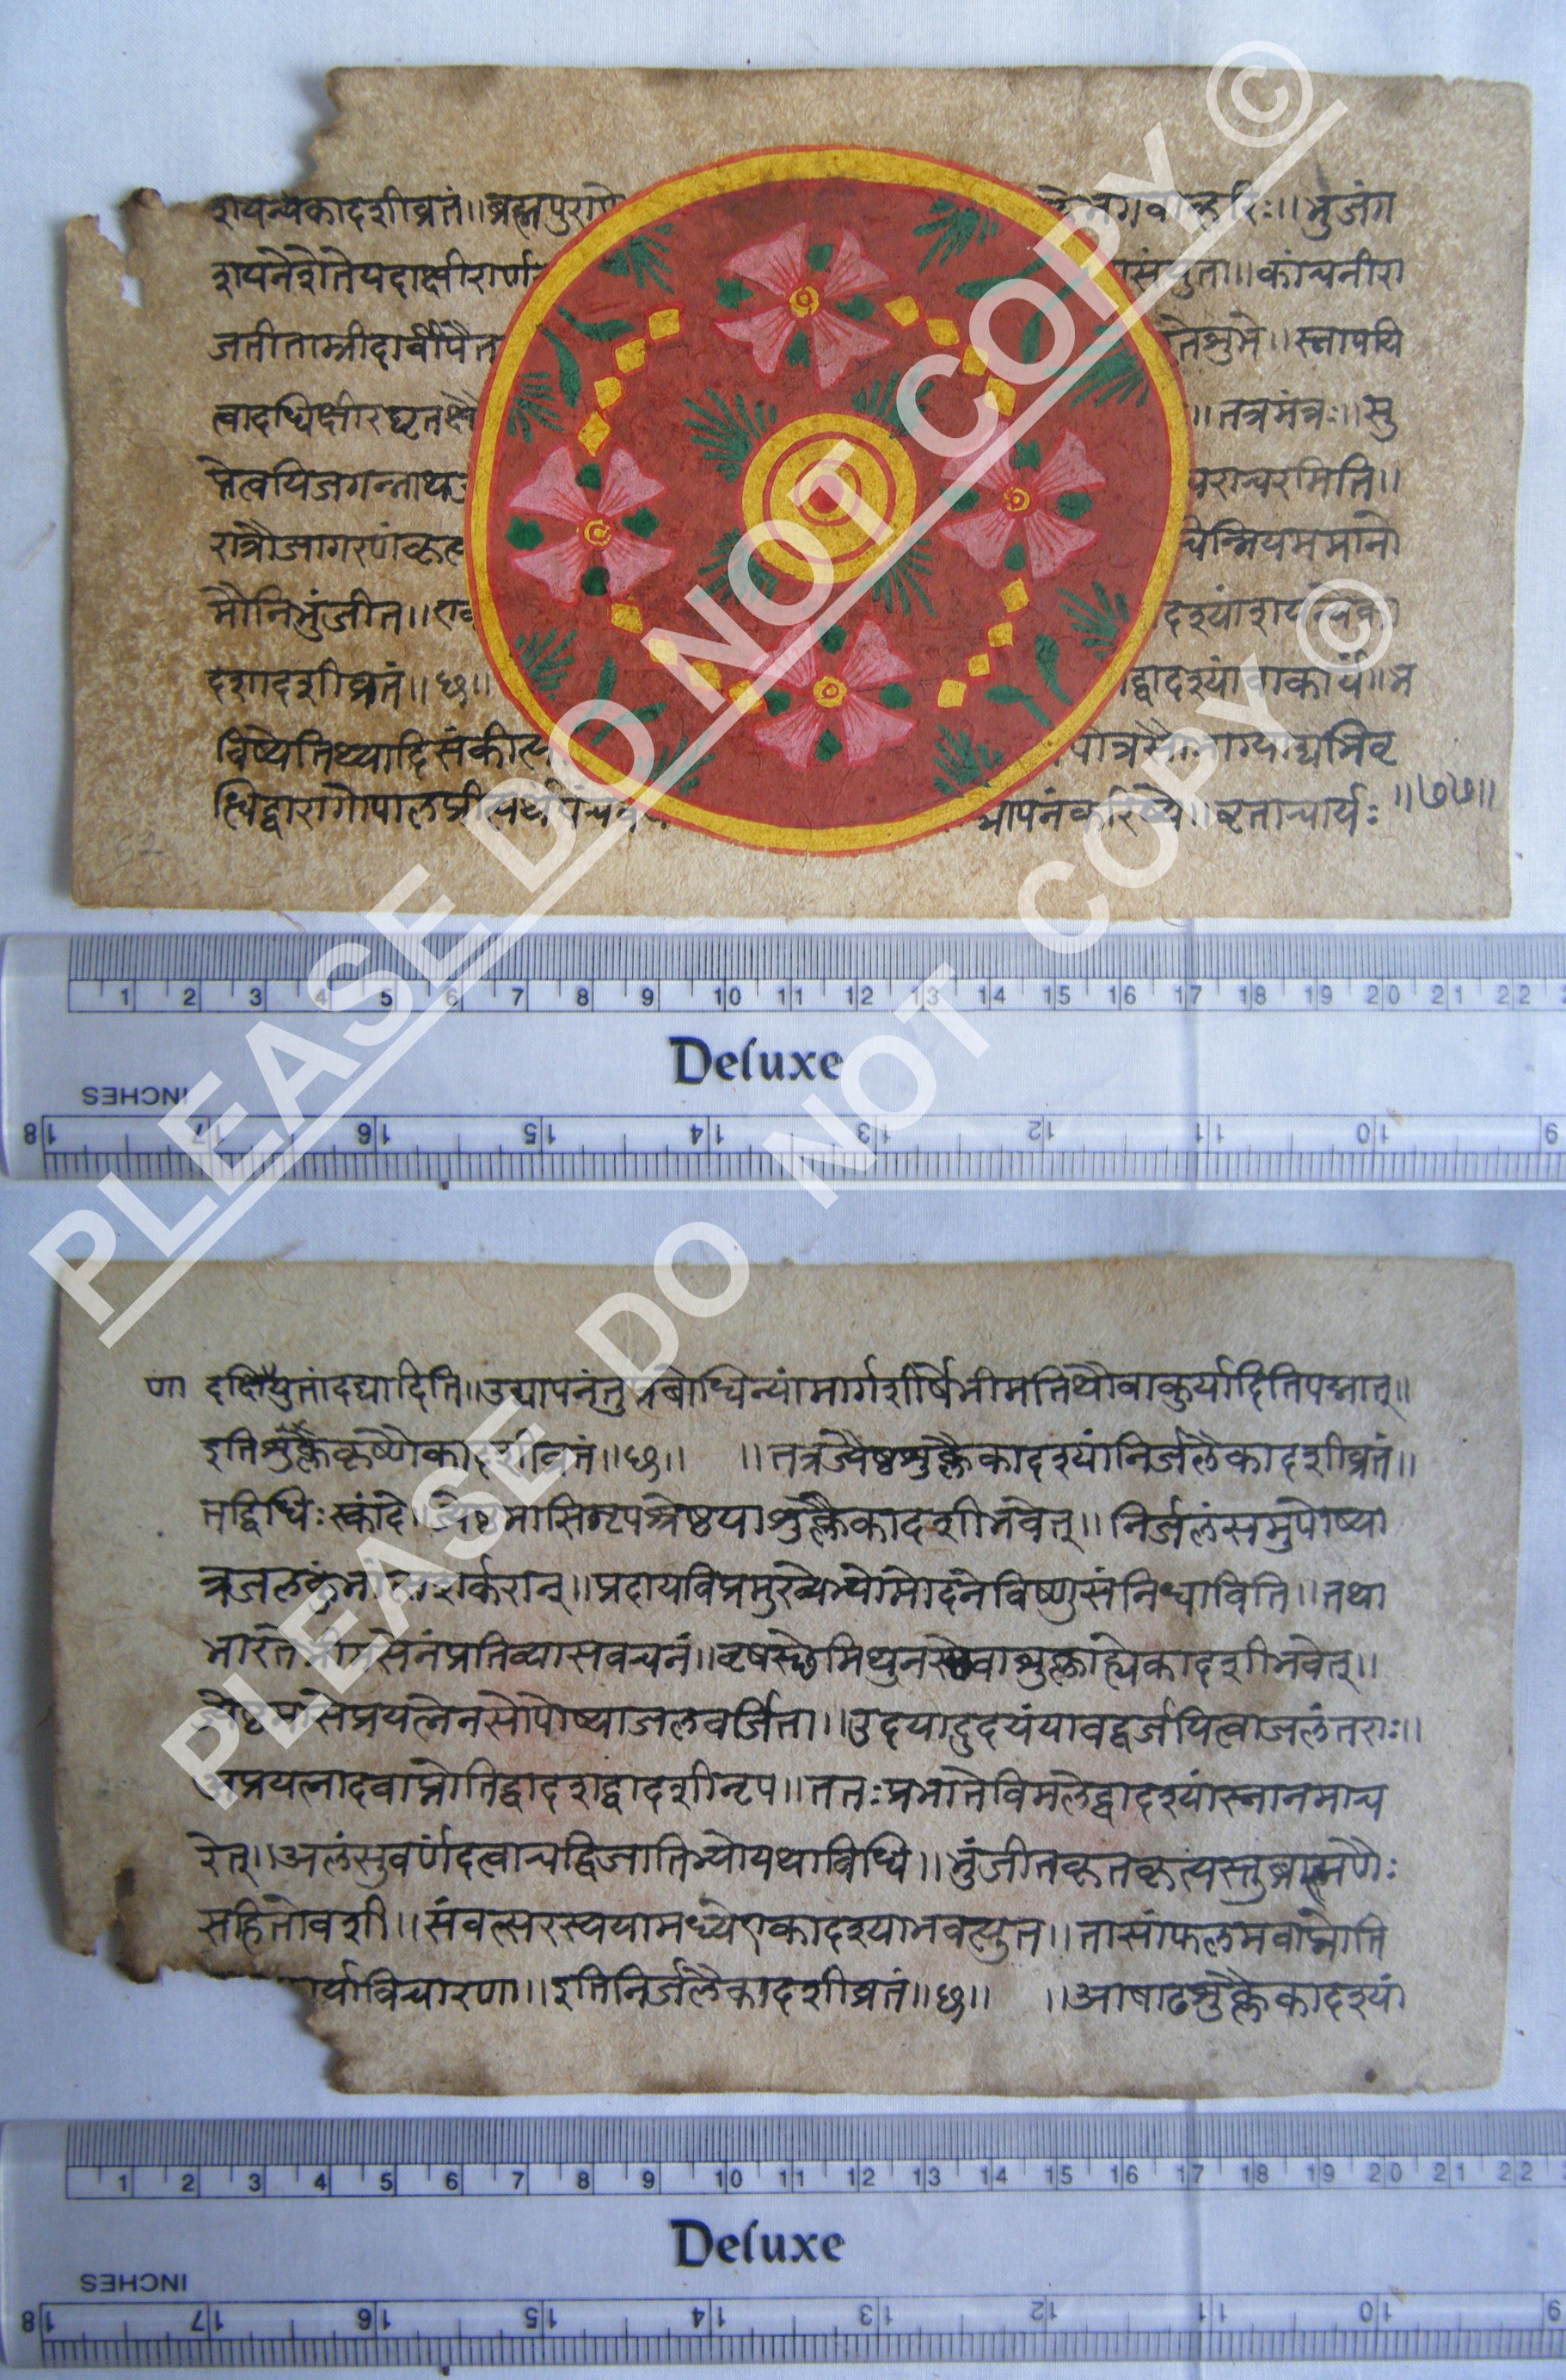 शयन्येकादशीव्रतं॥ब्रह्मपुराणे भगवान्हरिः॥भुजंग
शयनेशेतेयदाक्षीरार्ण संयुता॥कांचनीरा
जतीताम्रीदार्वीपैत तेशुभे॥स्नापयि
त्वादधिक्षीरघृतक्षौ ॥तत्रमंत्रः॥सु
प्तेत्वयिजगन्नाथज चराचरमिति॥
रात्रौजागरणंकृत्व
मौनिभुंजीत॥एव दश्यांशयन्येका
दशादशीव्रतं॥छ॥ द्वादश्यांवाकार्यं॥भ
विष्येतिथ्यादिसंकीर्त्य पौत्रसौभाग्याद्यभिवृ
त्धिद्वारागोपालप्रीत्यर्थं द्यापनंकरिष्ये॥वृताचार्यः ॥७७॥
PLEASE DO NOT COPY ©
PLEASE DO NOT COPY ©
1 2 3 4 5 6 7 8 9 10 11 12 13 14 15 16 17 18 19 20 21 22
Deluxe
INCHES
18 17 16 15 14 13 12 11 10 9
णा दक्षियुतांदद्यादिति॥उद्यापनंतुप्रबोधिन्यांमार्गशीर्षेभीमतिथौवाकुर्यादितिपद्मात्॥
इतिशुक्लैकृष्णैकादशीव्रतं॥छ॥ ॥तत्रज्येष्ठशुक्लैकादश्यांनिर्जलैकादशीव्रतं॥
तद्विधिःस्कांदे॥ज्येष्ठेमासिनृपश्रेष्ठयाशुक्लैकादशीभवेत्॥निर्जलंसमुपोष्या
त्रजलकुंभान्सशर्करान्॥प्रदायविप्रमुख्येभ्योमोदनेविष्णुसंनिधाविति॥तथा
भारतेभीमसेनंप्रतिव्यासवचनं॥वृषस्छेमिथुनस्छेवाशुक्लाह्येकादशीभवेत्॥
ज्येष्ठमासेप्रयत्नेनसोपोष्याजलवर्जिता॥उदयादुदयंयावद्वर्जयित्वाजलंनराः॥
अप्रयत्नादवाप्नोतिद्वादशद्वादशीनृप॥ततःप्रभातेविमलेद्वादश्यांस्नानमाच
रेत्॥अलंसुवर्णंदत्वाचद्विजातिभ्योयथाविधि॥भुंजीतकृतकृत्यस्तुब्राह्मणैः
सहितोवशी॥संवत्सरस्ययामध्येएकादश्याभवत्युत॥तासांफलमवाप्नोति
र्याविचारणा॥इतिनिर्जलैकादशीव्रतं॥छ॥ ॥आषाढशुक्लैकादश्यां
1 2 3 4 5 6 7 8 9 10 11 12 13 14 15 16 17 18 19 20 21 22
Deluxe
INCHES
18 17 16 15 14 13 12 11 10 9